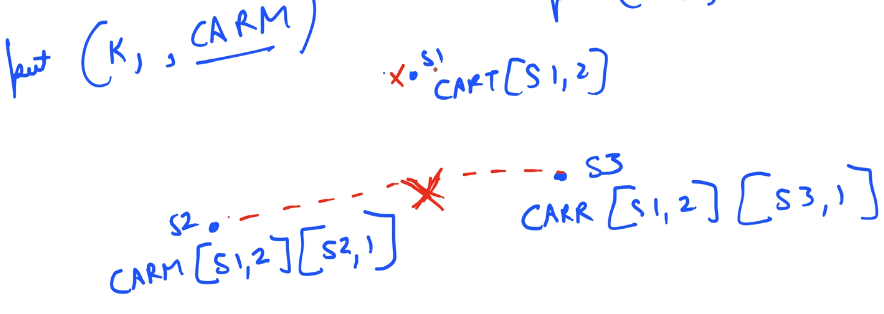 put (K, , CARM)
S1
CART [S1, 2]
S3
CARR [S1, 2] [S3, 1]
S2
CARM [S1, 2] [S2, 1]